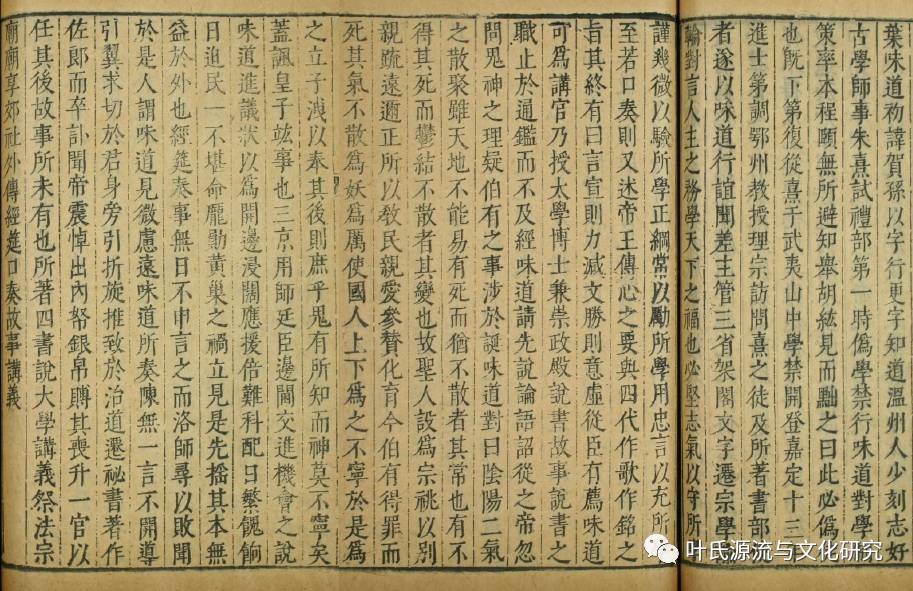 葉味道初諱賀孫以字行更字知道溫州人少刻志好
古學師事朱熹試禮部第一時偽學禁行味道對學
策率本程頤無所避知舉胡紘見而黜之曰此必偽
也既下第復從熹于武夷山中學禁開登嘉定十三
進士第調鄂州教授理宗訪問熹之徒及所著書部
者遂以味道行誼聞差主管三省架閣文字遷宗學
輪對言人主之務學天下之福也必堅志氣以守所
謹幾微以驗所學正綱常以勵所學用忠言以充所
至若口奏則又述帝王傳心之要與四代作歌作銘之
旨其終有曰言宣則力減文勝則意虛從臣有薦味道
可為講官乃授太學博士兼崇政殿說書故事說書之
職止於通鑑而不及經味道請先說論語詔從之帝忽
問鬼神之理疑伯有之事涉於誕味道對曰陰陽二氣
之散聚雖天地不能易有死而猶不散者其常也有不
得其死而鬱結不散者其變也故聖人設為宗祧以別
親疏遠邇正所以教民親愛參贊化育今伯有得罪而
死其氣不散為妖為厲使國人上下為之不寧於是為
之立子洩以奉其後則庶乎鬼有所知而神莫不寧矣
蓋諷皇子竑事也三京用師廷臣邊閫交進機會之說
味道進議狀以為開邊浸闊應援倍難科配日繁餽餉
日迫民一不堪命龐勛黃巢之禍立見是先搖其本無
益於外也經筵奏事無日不申言之而洛師尋以敗聞
於是人謂味道見微慮遠味道所奏陳無一言不開導
引翼求切於君身旁引折旋推致於治道遷秘書著作
佐郎而卒訃聞帝震悼出內帑銀帛賻其喪升一官以
任其後故事所未有也所著四書說大學講義祭法宗
廟廟享郊社外傳經筵口奏故事講義
叶氏源流与文化研究